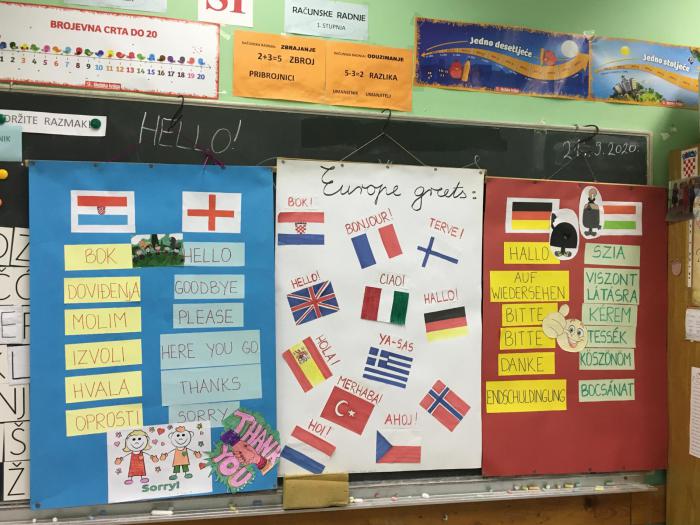 BROJEVNA CRTA DO 20
1 2 3 4 5 6 7 8 9 10 11 12 13 14 15 16 17 18 19 20
ŠI
RAČUNSKE RADNJE
1. STUPNJA
RAČUNSKA RADNJA: ZBRAJANJE
2+3=5 ZBROJ
PRIBROJNICI
RAČUNSKA RADNJA: ODUZIMANJE
5-3=2 RAZLIKA
UMANJENIK UMANJITELJ
Jedno desetljeće
Jedno stoljeće
DRŽITE RAZMAK
NIK
HELLO!
BOK
HELLO
DOVIĐENJA
GOODBYE
MOLIM
PLEASE
IZVOLI
HERE YOU GO
HVALA
THANKS
OPROSTI
SORRY
Sorry!
THANK
YOU
Europe greets:
BOK!
BONJOUR!
TERVE!
HELLO!
CIAO!
HALLO!
HOLA!
YA-SAS
MERHABA!
HOI!
AHOJ!
HALLO
SZIA
AUF
WIEDERSEHEN
VISZONT
LÁTÁSRA
BITTE
KÉREM
BITTE
TESSÉK
DANKE
KÖSZÖNÖM
ENDSCHULDINGUNG
BOCSÁNAT